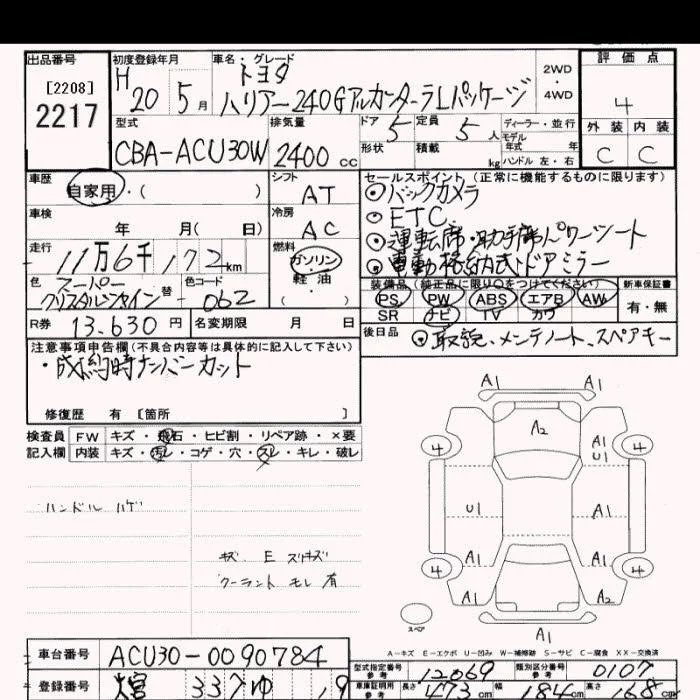 出品番号 初度登録年月 車名・グレード 評価点
[2208] H トヨタ 2WD
2217 20 5月 ハリアー240Gアルカンターラ Lパッケージ ・ 4
4WD
外装 内装
型式 排気量 ドア 定員 ディーラー・並行
CBA-ACU30W 2400cc 5 5人 モデル年式 年 C C
形状 積載 kg ハンドル 左・右
車歴 シフト セールスポイント (正常に機能するものに限ります)
自家用・( ) AT ◎バックカメラ
車検 冷房 ◎ETC
年 月( 日) AC ◎運転席・助手席パワーシート
走行 燃料 ◎電動格納式ドアミラー
11万6千172km ガソリン・軽油・( )
色 スーパークリスタルシャイン 替 色コード 062
装備品 (純正品に限り○をつけてください) 新車保証書
PS PW ABS エアB AW 有・無
SR ナビ TV カワ
R券 13.630円 名変期限 月 日
後日品 ◎取説、メンテノート、スペアキー
注意事項申告欄(不具合内容等は具体的に記入して下さい)
・成約時ナンバーカット
修復歴 有 [箇所 ]
検査員 FW キズ・飛石・ヒビ割・リペア跡・×要
記入欄 内装 キズ・汚レ・コゲ・穴・スレ・キレ・破レ
ハンドル ハゲ
キズ E スリキズ
クーラント モレ 有
A1 A1
A2
4 A1 4
U1
U1 A1
A1 A1
4 4
A1 A2
スペア A1
A-キズ E-エクボ U-凹み W-補修跡 S-サビ C-腐食 XX-交換済
車台番号 ACU30-0090784
型式指定番号 参考 12069 類別区分番号 参考 0107
登録番号 337 ゆ 19
車庫証明用 参考 長さ 473cm 幅 184cm 高さ 168cm